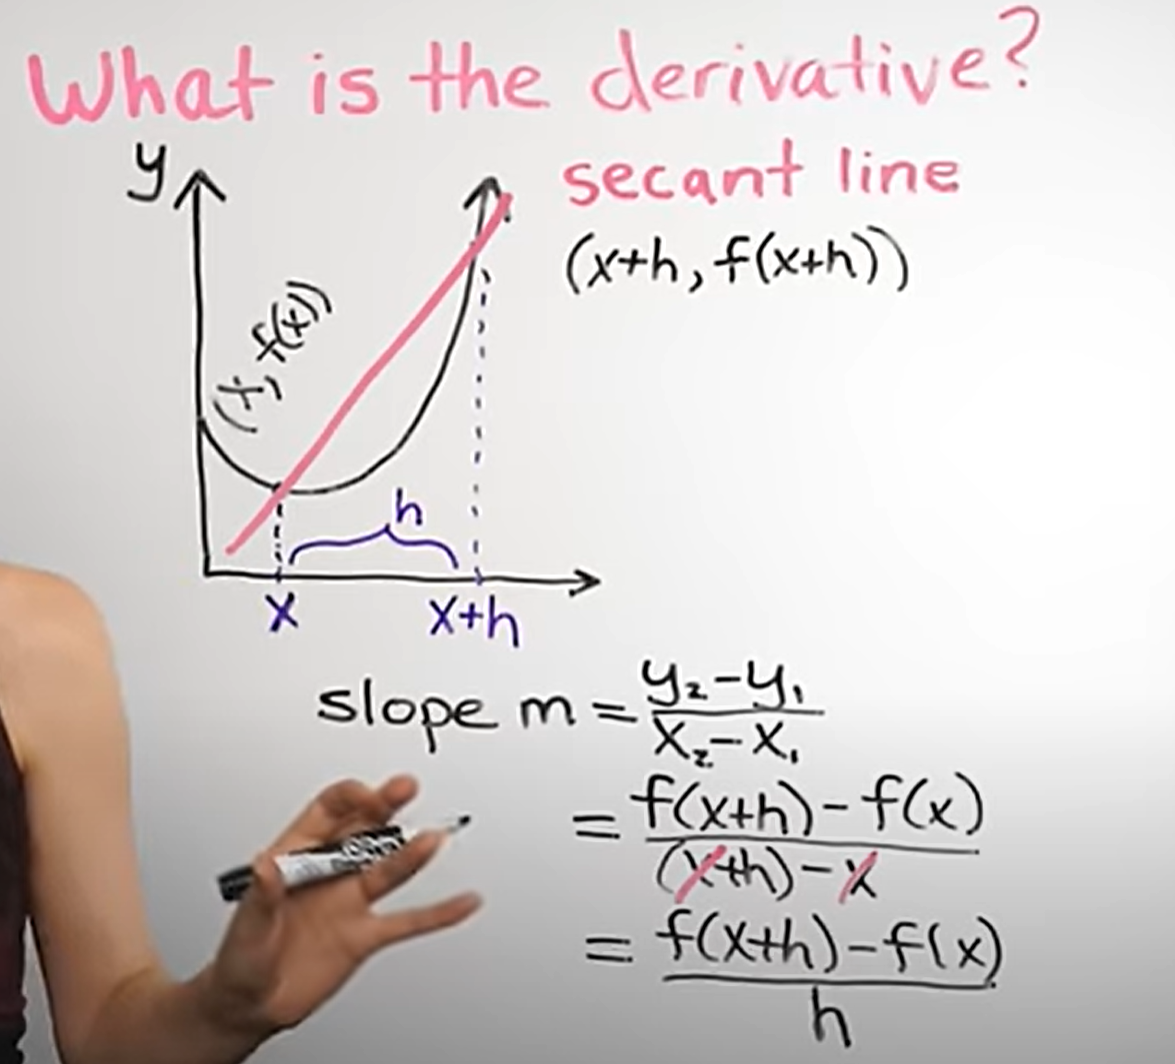 What is the derivative?
y
secant line
(x+h, f(x+h))
(x, f(x))
h
x
x+h
slope m = y₂-y₁
x₂-x₁
= f(x+h)-f(x)
(x+h)-x
= f(x+h)-f(x)
h